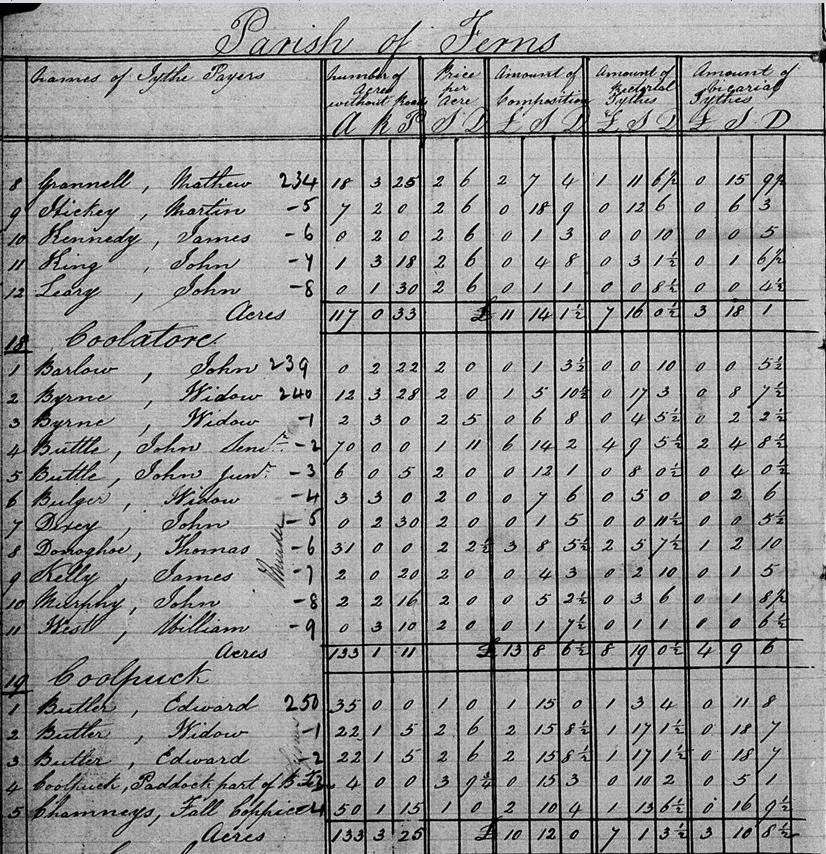 Parish of Ferns
Names of Tythe Payers | Number of Acres without Roads | Price per Acre | Amount of Composition | Amount of Rectorial Tythes | Amount of Vicarial Tythes
A R P | S D | £ S D | £ S D | £ S D
8 Grannell, Mathew 234 | 18 3 25 | 2 6 | 2 7 4 | 1 11 6½ | 0 15 9½
9 Hickey, Martin -5 | 7 2 0 | 2 6 | 0 18 9 | 0 12 6 | 0 6 3
10 Kennedy, James -6 | 0 2 0 | 2 6 | 0 1 3 | 0 0 10 | 0 0 5
11 King, John -7 | 1 3 18 | 2 6 | 0 4 8 | 0 3 1½ | 0 1 6½
12 Leary, John -8 | 0 1 30 | 2 6 | 0 1 1 | 0 0 8½ | 0 0 4½
Acres | 117 0 33 | £ 11 14 1½ | 7 16 0½ | 3 18 1
18 Coolatore
1 Barlow, John 239 | 0 2 22 | 2 0 | 0 1 3½ | 0 0 10 | 0 0 5½
2 Byrne, Widow 240 | 12 3 28 | 2 0 | 1 5 10½ | 0 17 3 | 0 8 7½
3 Byrne, Widow -1 | 2 3 0 | 2 5 | 0 6 8 | 0 4 5½ | 0 2 2½
4 Buttle, John Senr. -2 | 70 0 0 | 1 11 | 6 14 2 | 4 9 5½ | 2 4 8½
5 Buttle, John Junr. -3 | 6 0 5 | 2 0 | 0 12 1 | 0 8 0½ | 0 4 0½
6 Bulger, Widow -4 | 3 3 0 | 2 0 | 0 7 6 | 0 5 0 | 0 2 6
7 Dixey, John -5 | 0 2 30 | 2 0 | 0 1 5 | 0 0 11½ | 0 0 5½
8 Donoghoe, Thomas -6 | 31 0 0 | 2 2½ | 3 8 5½ | 2 5 7½ | 1 2 10
9 Kelly, James -7 | 2 0 20 | 2 0 | 0 4 3 | 0 2 10 | 0 1 5
10 Murphy, John -8 | 2 2 16 | 2 0 | 0 5 2½ | 0 3 6 | 0 1 8½
11 West, William -9 | 0 3 10 | 2 0 | 0 1 7½ | 0 1 1 | 0 0 6½
Acres | 133 1 11 | £ 13 8 6½ | 8 19 0½ | 4 9 6
19 Coolpuck
1 Butler, Edward 250 | 35 0 0 | 1 0 | 1 15 0 | 1 3 4 | 0 11 8
2 Butler, Widow -1 | 22 1 5 | 2 6 | 2 15 8½ | 1 17 1½ | 0 18 7
3 Butler, Edward -2 | 22 1 5 | 2 6 | 2 15 8½ | 1 17 1½ | 0 18 7
4 Coolpuck, Paddock part of | 4 0 0 | 3 9¾ | 0 15 3 | 0 10 2 | 0 5 1
5 Chamneys, Fall Coppice -4 | 50 1 15 | 1 0 | 2 10 4 | 1 13 6½ | 0 16 9½
Acres | 133 3 25 | £ 10 12 0 | 7 1 3½ | 3 10 8½